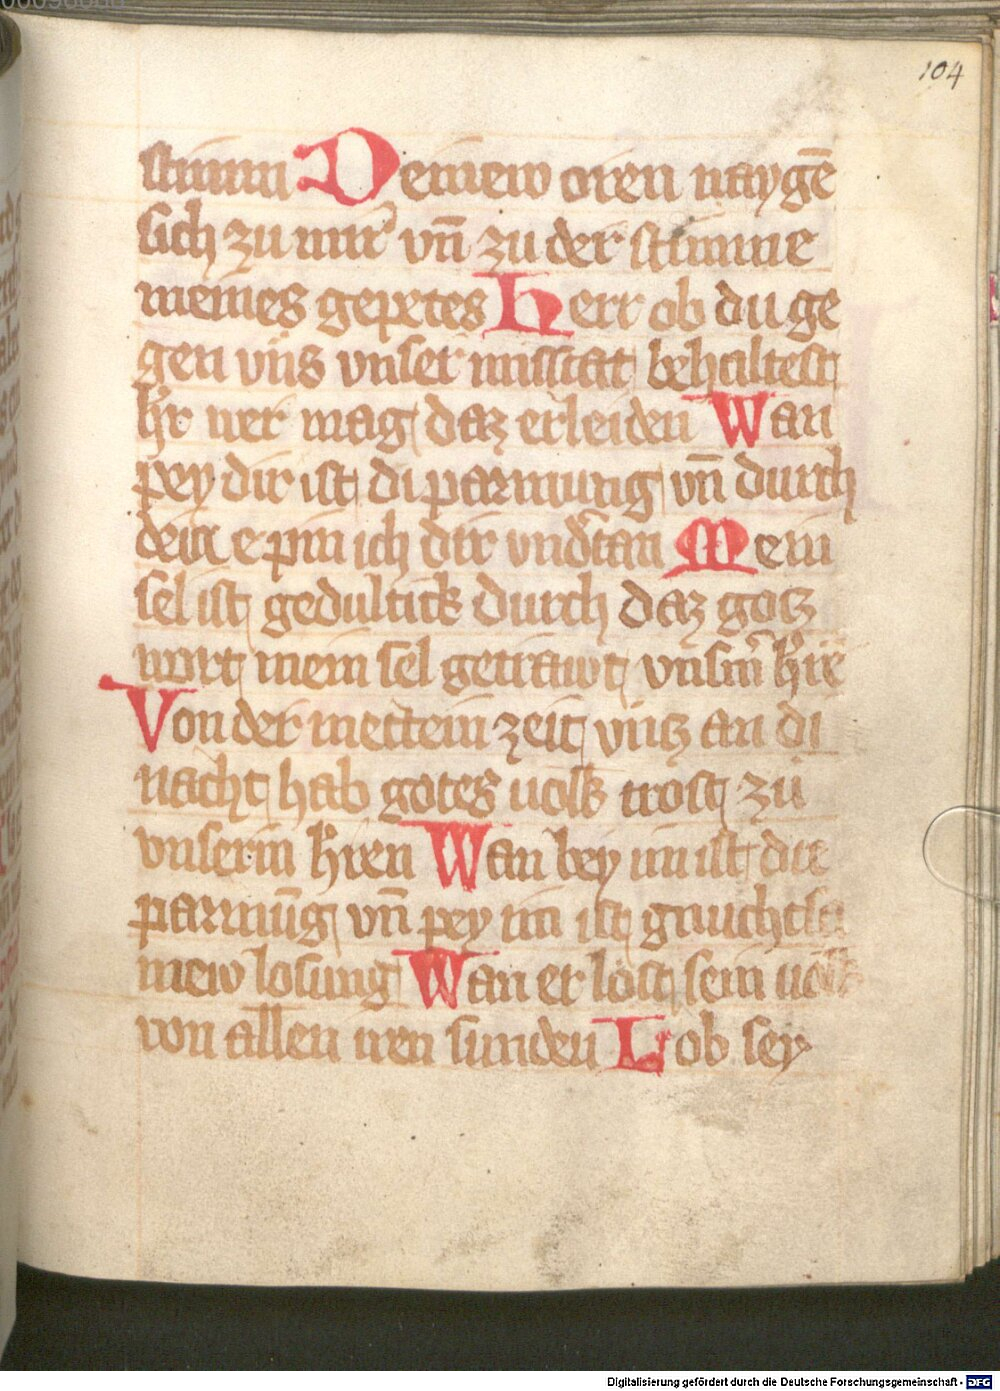 104
stimm Deinew oren naygē
sich zu mir vn̄ zu der stimme
meines gepetes Herr ob du ge
gen vns vnser missetat behaltest
h̓r wer mag daz erleiden Wan
pey dir ist di parmung vn̄ durch
dein e pin ich dir vnd̓tan Mein
sel ist gedultick durch daz gotz
wort mein sel getrawt vnsm̓ h̓re
Von der mettein zeit vntz an di
nacht hab gotes volk trost zu
vnserm h̓ren Wan bey im ist die
parmūg vn̄ pey im ist gnuchtsa
mew losung Wan er lost sein volk
von allen iren sunden Lob sey
Digitalisierung gefördert durch die Deutsche Forschungsgemeinschaft - DFG